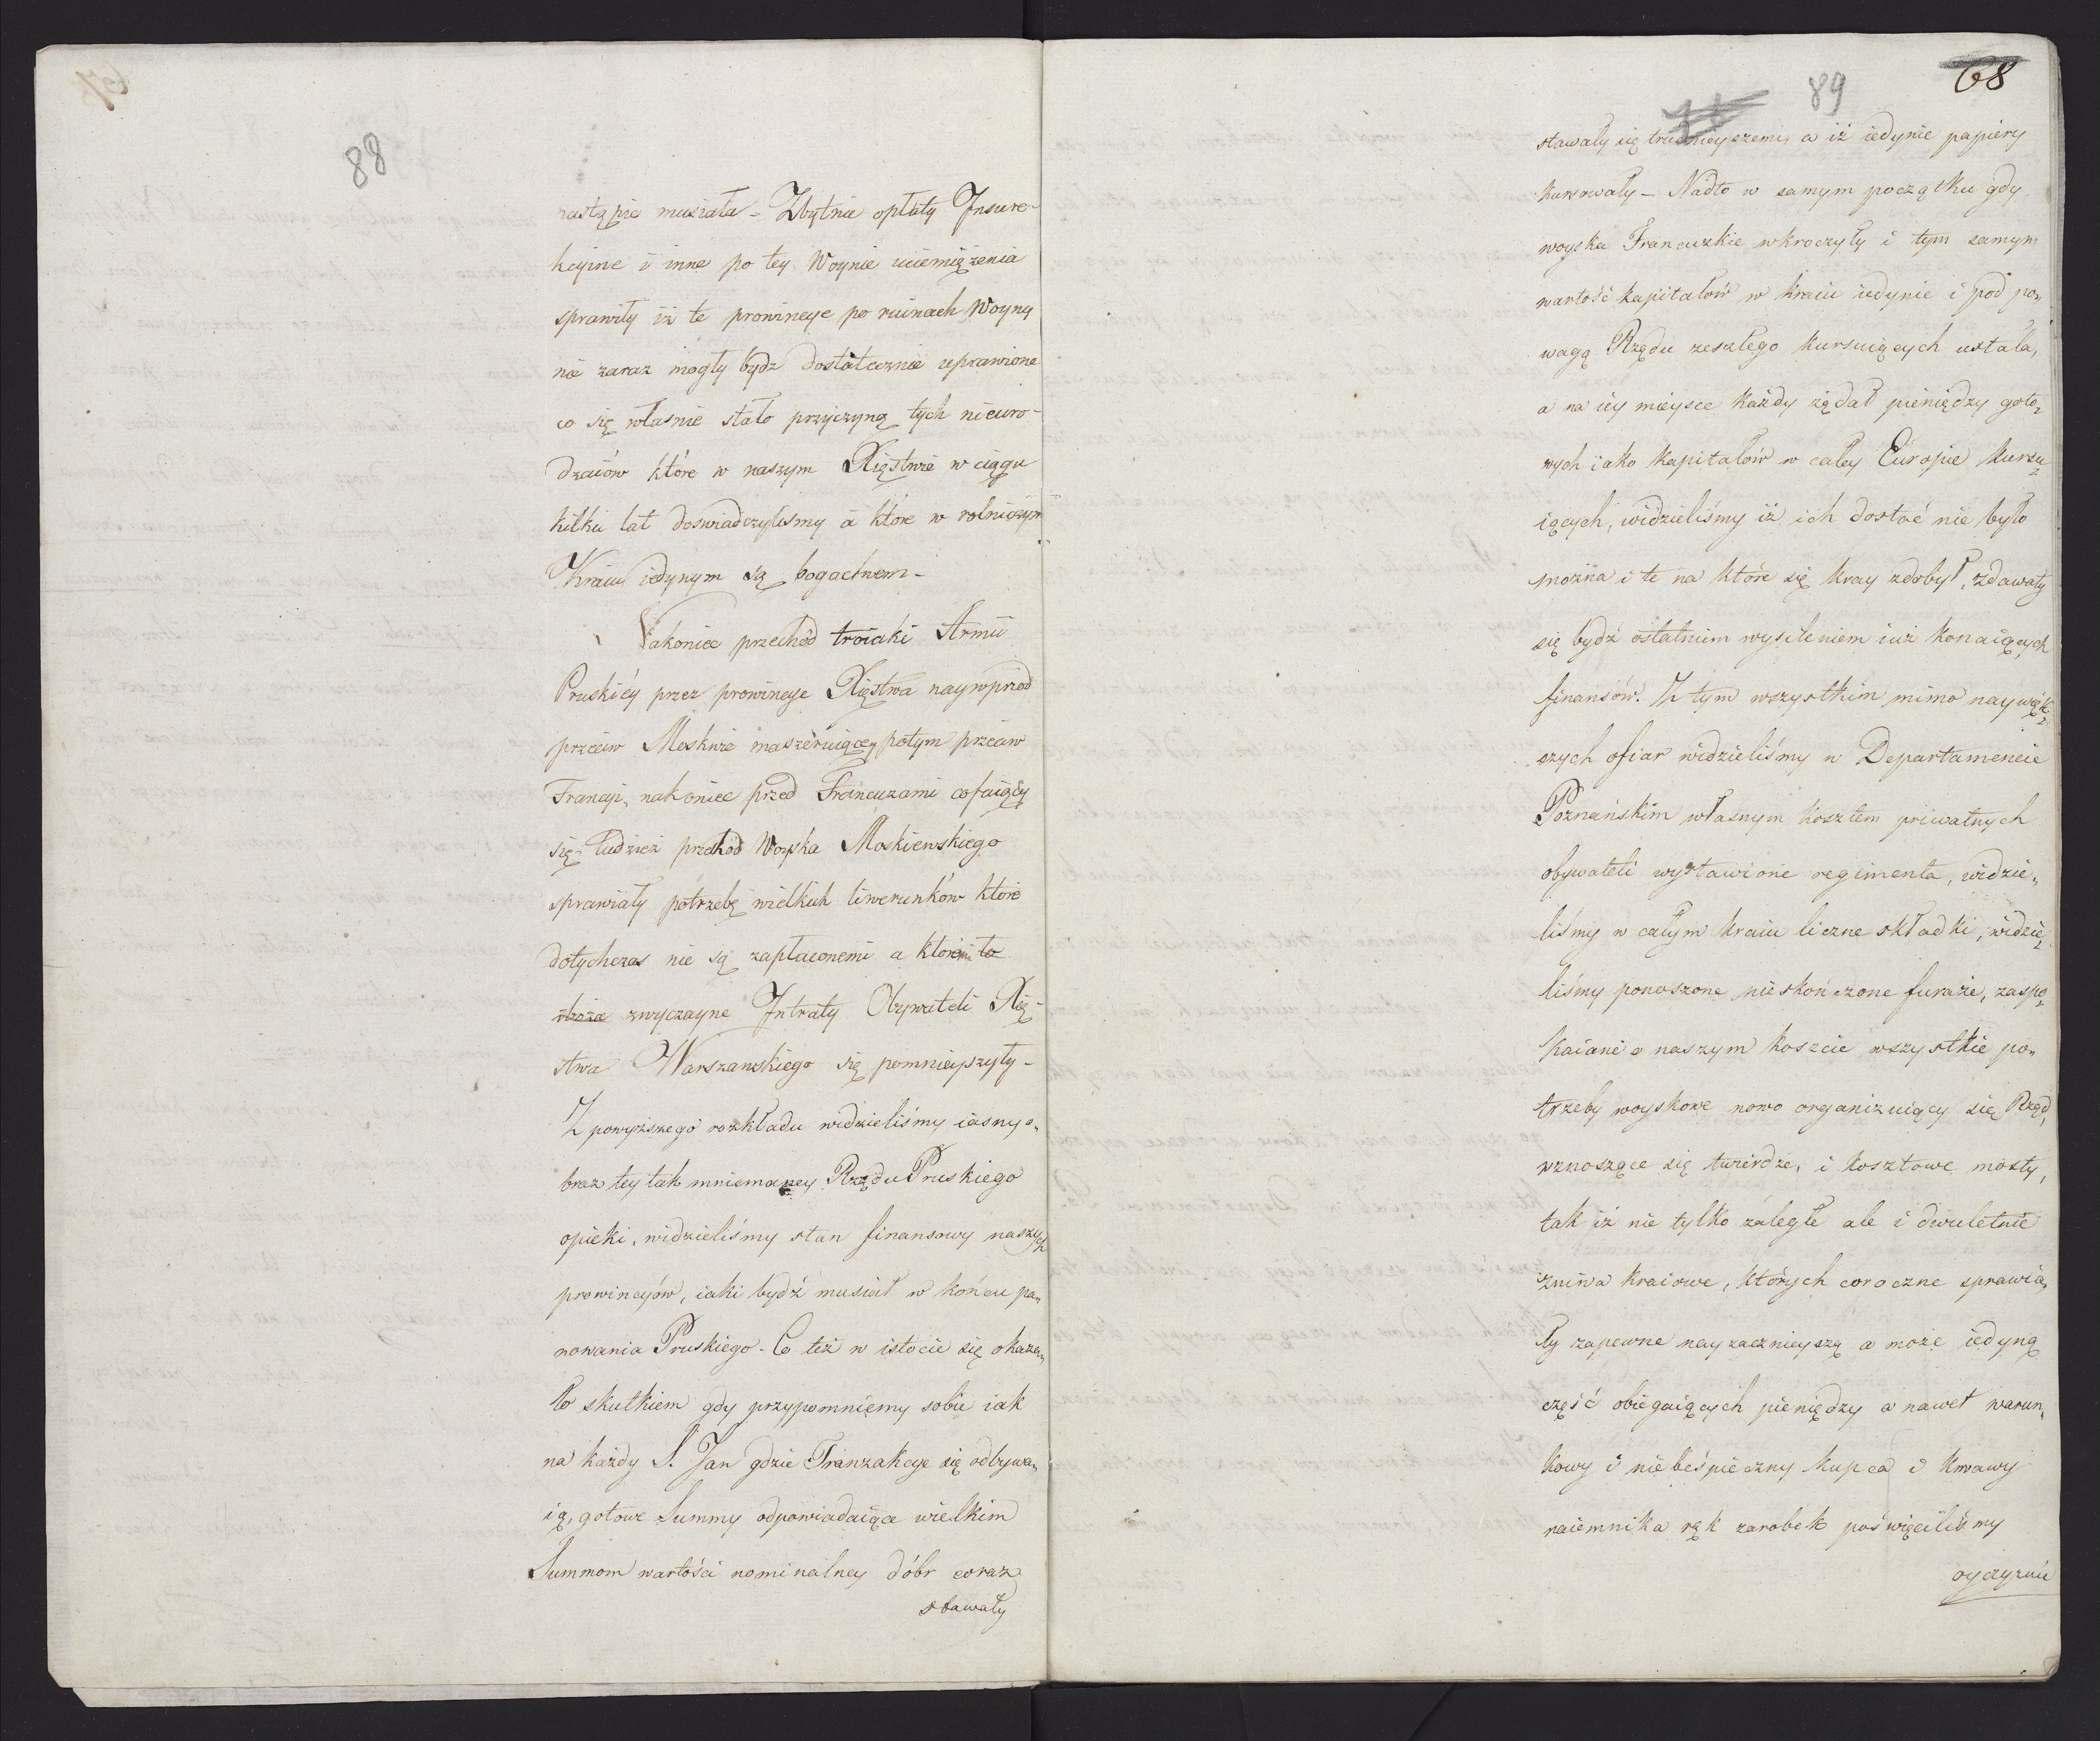 88
nastąpić musiała – Zbytnie opłaty Insure-
kcyine i inne po tey Woynie uciemiężenia
sprawiły iż te prowincye po ruinach Woyny
nie zaraz mogły bydz dostatecznie uprawione
co się własnie stało przyczyną tych nieuro-
dzaiów które w naszym Xięstwie w ciągu
kilku lat doswiadczylismy a które w rolniczym
Kraiu iedynym są bogactwem –
Nakoniec przechód troiaki Armii
Pruskiéy przez prowincye Xięstwa naywprzod
przeciw Moskwie maszeruiącey potym przeciw
Francyi, nakoniec przed Francuzami cofaiącey
się tudzież przechód Woyska Moskiewskiego
sprawiały potrzebę wielkich liwerunków które
dotychczas nie są zapłaconemi a któremi to
zboże zwyczayne Intraty Obywateli Xię-
stwa Warszawskiego się pomnieyszyły –
Z powyższego rozkładu widzieliśmy iasny o„
braz tey tak mniemaney Rządu Pruskiego
opieki, widzieliśmy stan finansowy naszych
prowincyów, iaki bydź musiał w końcu pa„
nowania Pruskiego – Co też w istocie się okaza„
ło skutkiem gdy przypomniemy sobie iak
na każdy S. Jan gdzie Tranzakcye się odbywa„
ią, gotowe Summy odpowiadaiące wielkim
Summom wartości nominalney dóbr coraz
stawały
89
68
stawały się trudnieyszemi, a iż iedynie papiery
kursowały – Nadto w samym początku gdy
woyska Francuzkie wkroczyły i tym samym
wartość kapitałów w kraiu iedynie i pod po„
wagą Rządu zeszłego kursuiących ustała,
a na iey mieysce każdy żądał pieniędzy goto„
wych iako kapitałów w całey Europie kursu„
iących, widzieliśmy iż ich dostać nie było
można i te na które się kray zdobył, zdawały
się bydź ostatniem wysileniem iuż konaiących
finansów. Z tym wszystkim mimo naywięk„
szych ofiar widzieliśmy w Departamencie
Poznańskim własnym kosztem priwatnych
obywateli wystawione regimenta, widzie„
liśmy w całym kraiu liczne składki, widzie„
liśmy ponoszone nieskończone furaże, zaspo„
kaiane o naszym koszcie wszystkie po„
trzeby woyskowe nowo organizuiący się Rząd,
wznoszące się twierdze, i kosztowe mosty,
tak iż nie tylko zaległe ale i dwuletnie
żniwa kraiowe, których coroczne sprawia„
ły zapewne nayzacznieyszą a może iedyną
część obiegaiących pieniędzy a nawet warun„
kowy i niebeśpieczny kupca i krwawy
naiemnika rąk zarobek poświęciliśmy
oyczyznie